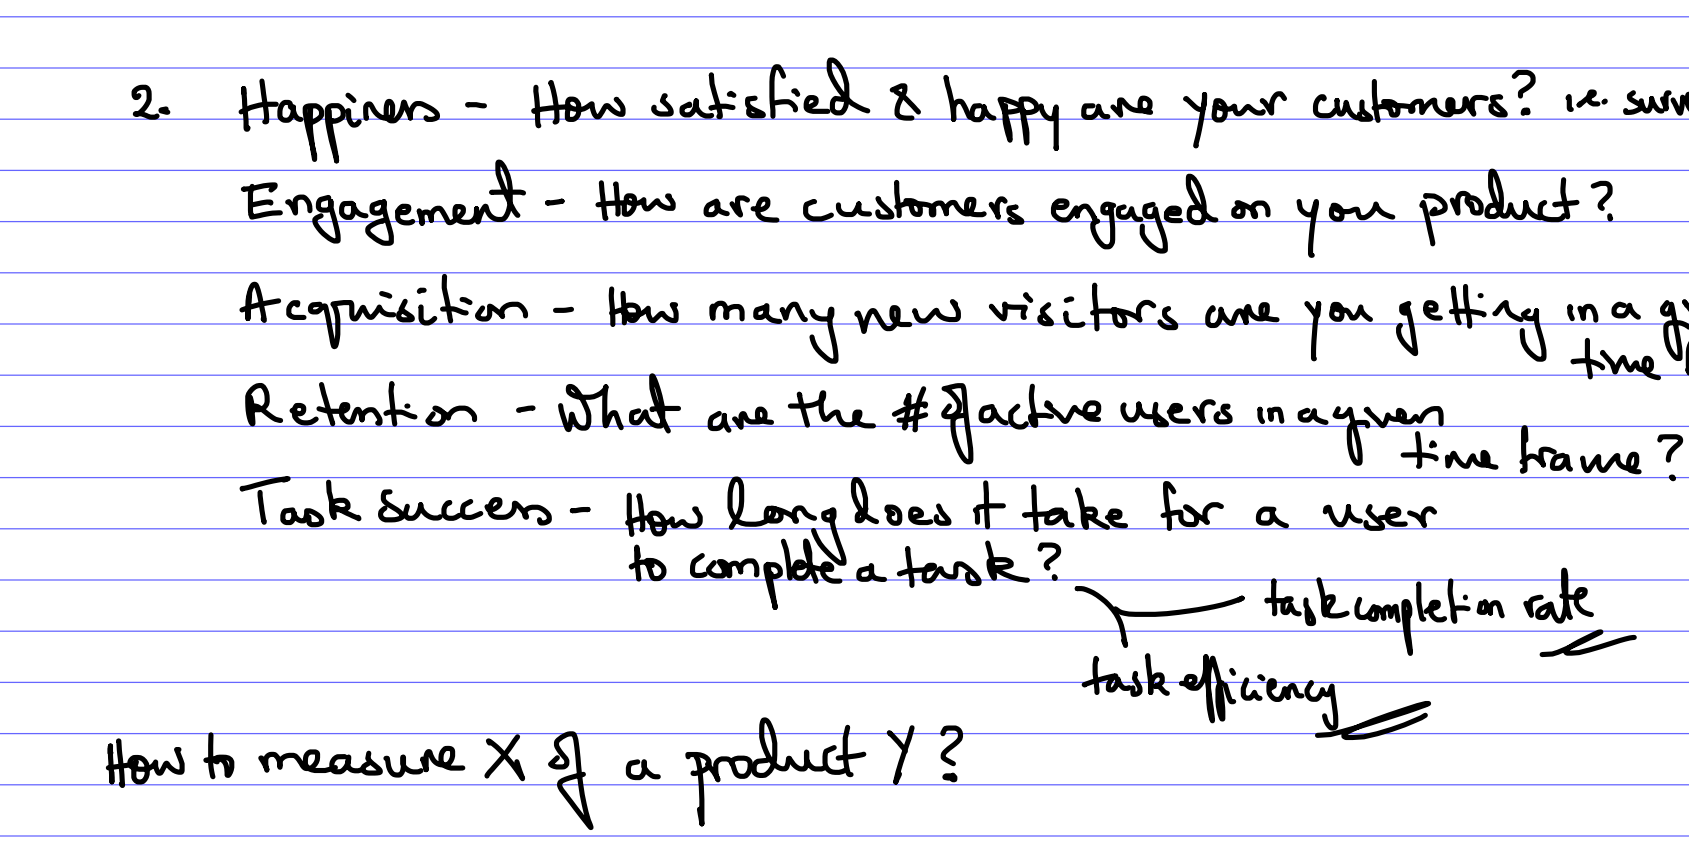 2. Happiness - How satisfied & happy are your customers? i.e.
Engagement - How are customers engaged on you product?
Acquisition - How many new visitors are you getting in a
time
Retention - What are the # of active users in a given
time frame?
Task success - How long does it take for a user
to complete a task?
task completion rate
task efficiency
How to measure X of a product Y?